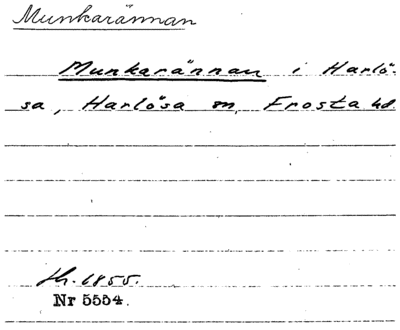 Munkarännan
Munkarännan i Harlö-
sa, Harlösa sn, Frosta hd.
1855.
Nr 5554.